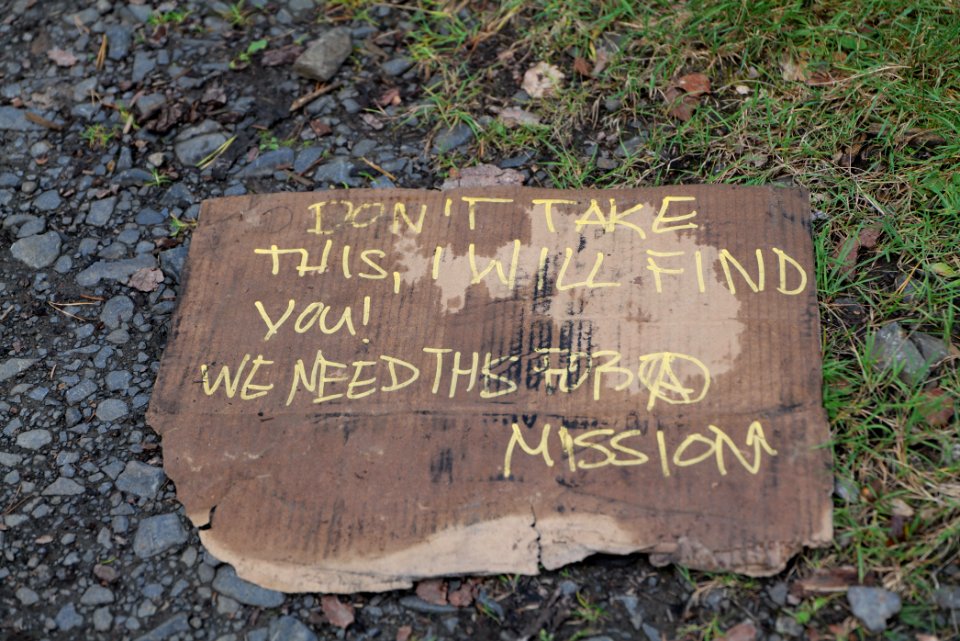 DON'T TAKE
THIS, I WILL FIND
YOU!
WE NEED THIS FOR A
MISSION